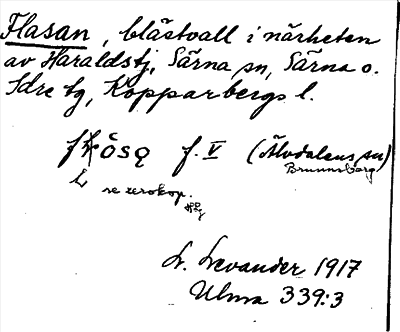 Flasan, blästvall i närheten
av Haraldstj, Särna sn, Särna o.
Idre tg, Kopparbergs l.
f. V (Älvdalens sn)
Brunnsberg
se xerokop.
L. Levander 1917
Ulma 339:3